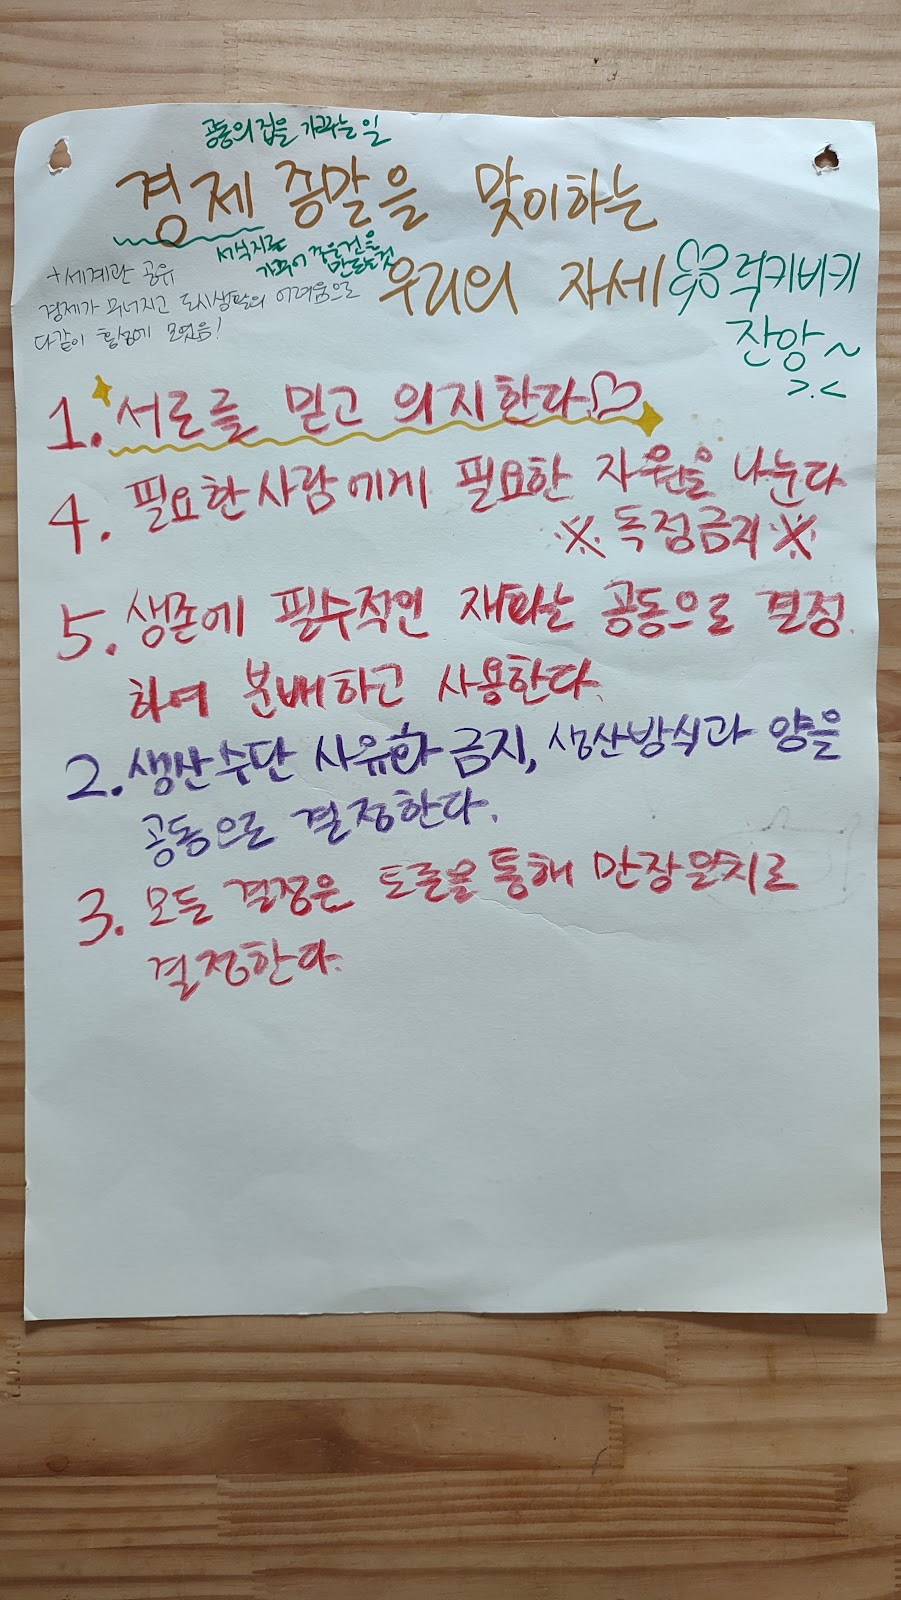 공동의 집을 가꾸는 일
경제 종말을 맞이하는
서식지를
가꾸어 좋은 것을
만드는 것
우리의 자세 럭키비키
잔앙~
>.<
+세계관 공유
경제가 무너지고 도시생활의 어려움으로
다같이 홍성에 모였음!
1. 서로를 믿고 의지한다♡
4. 필요한 사람에게 필요한 자원을 나눈다
※ 독점금지 ※
5. 생존에 필수적인 재화는 공동으로 결정
하여 분배하고 사용한다.
2. 생산수단 사유화 금지, 생산방식과 양을
공동으로 결정한다.
3. 모든 결정은 토론을 통해 만장일치로
결정한다.